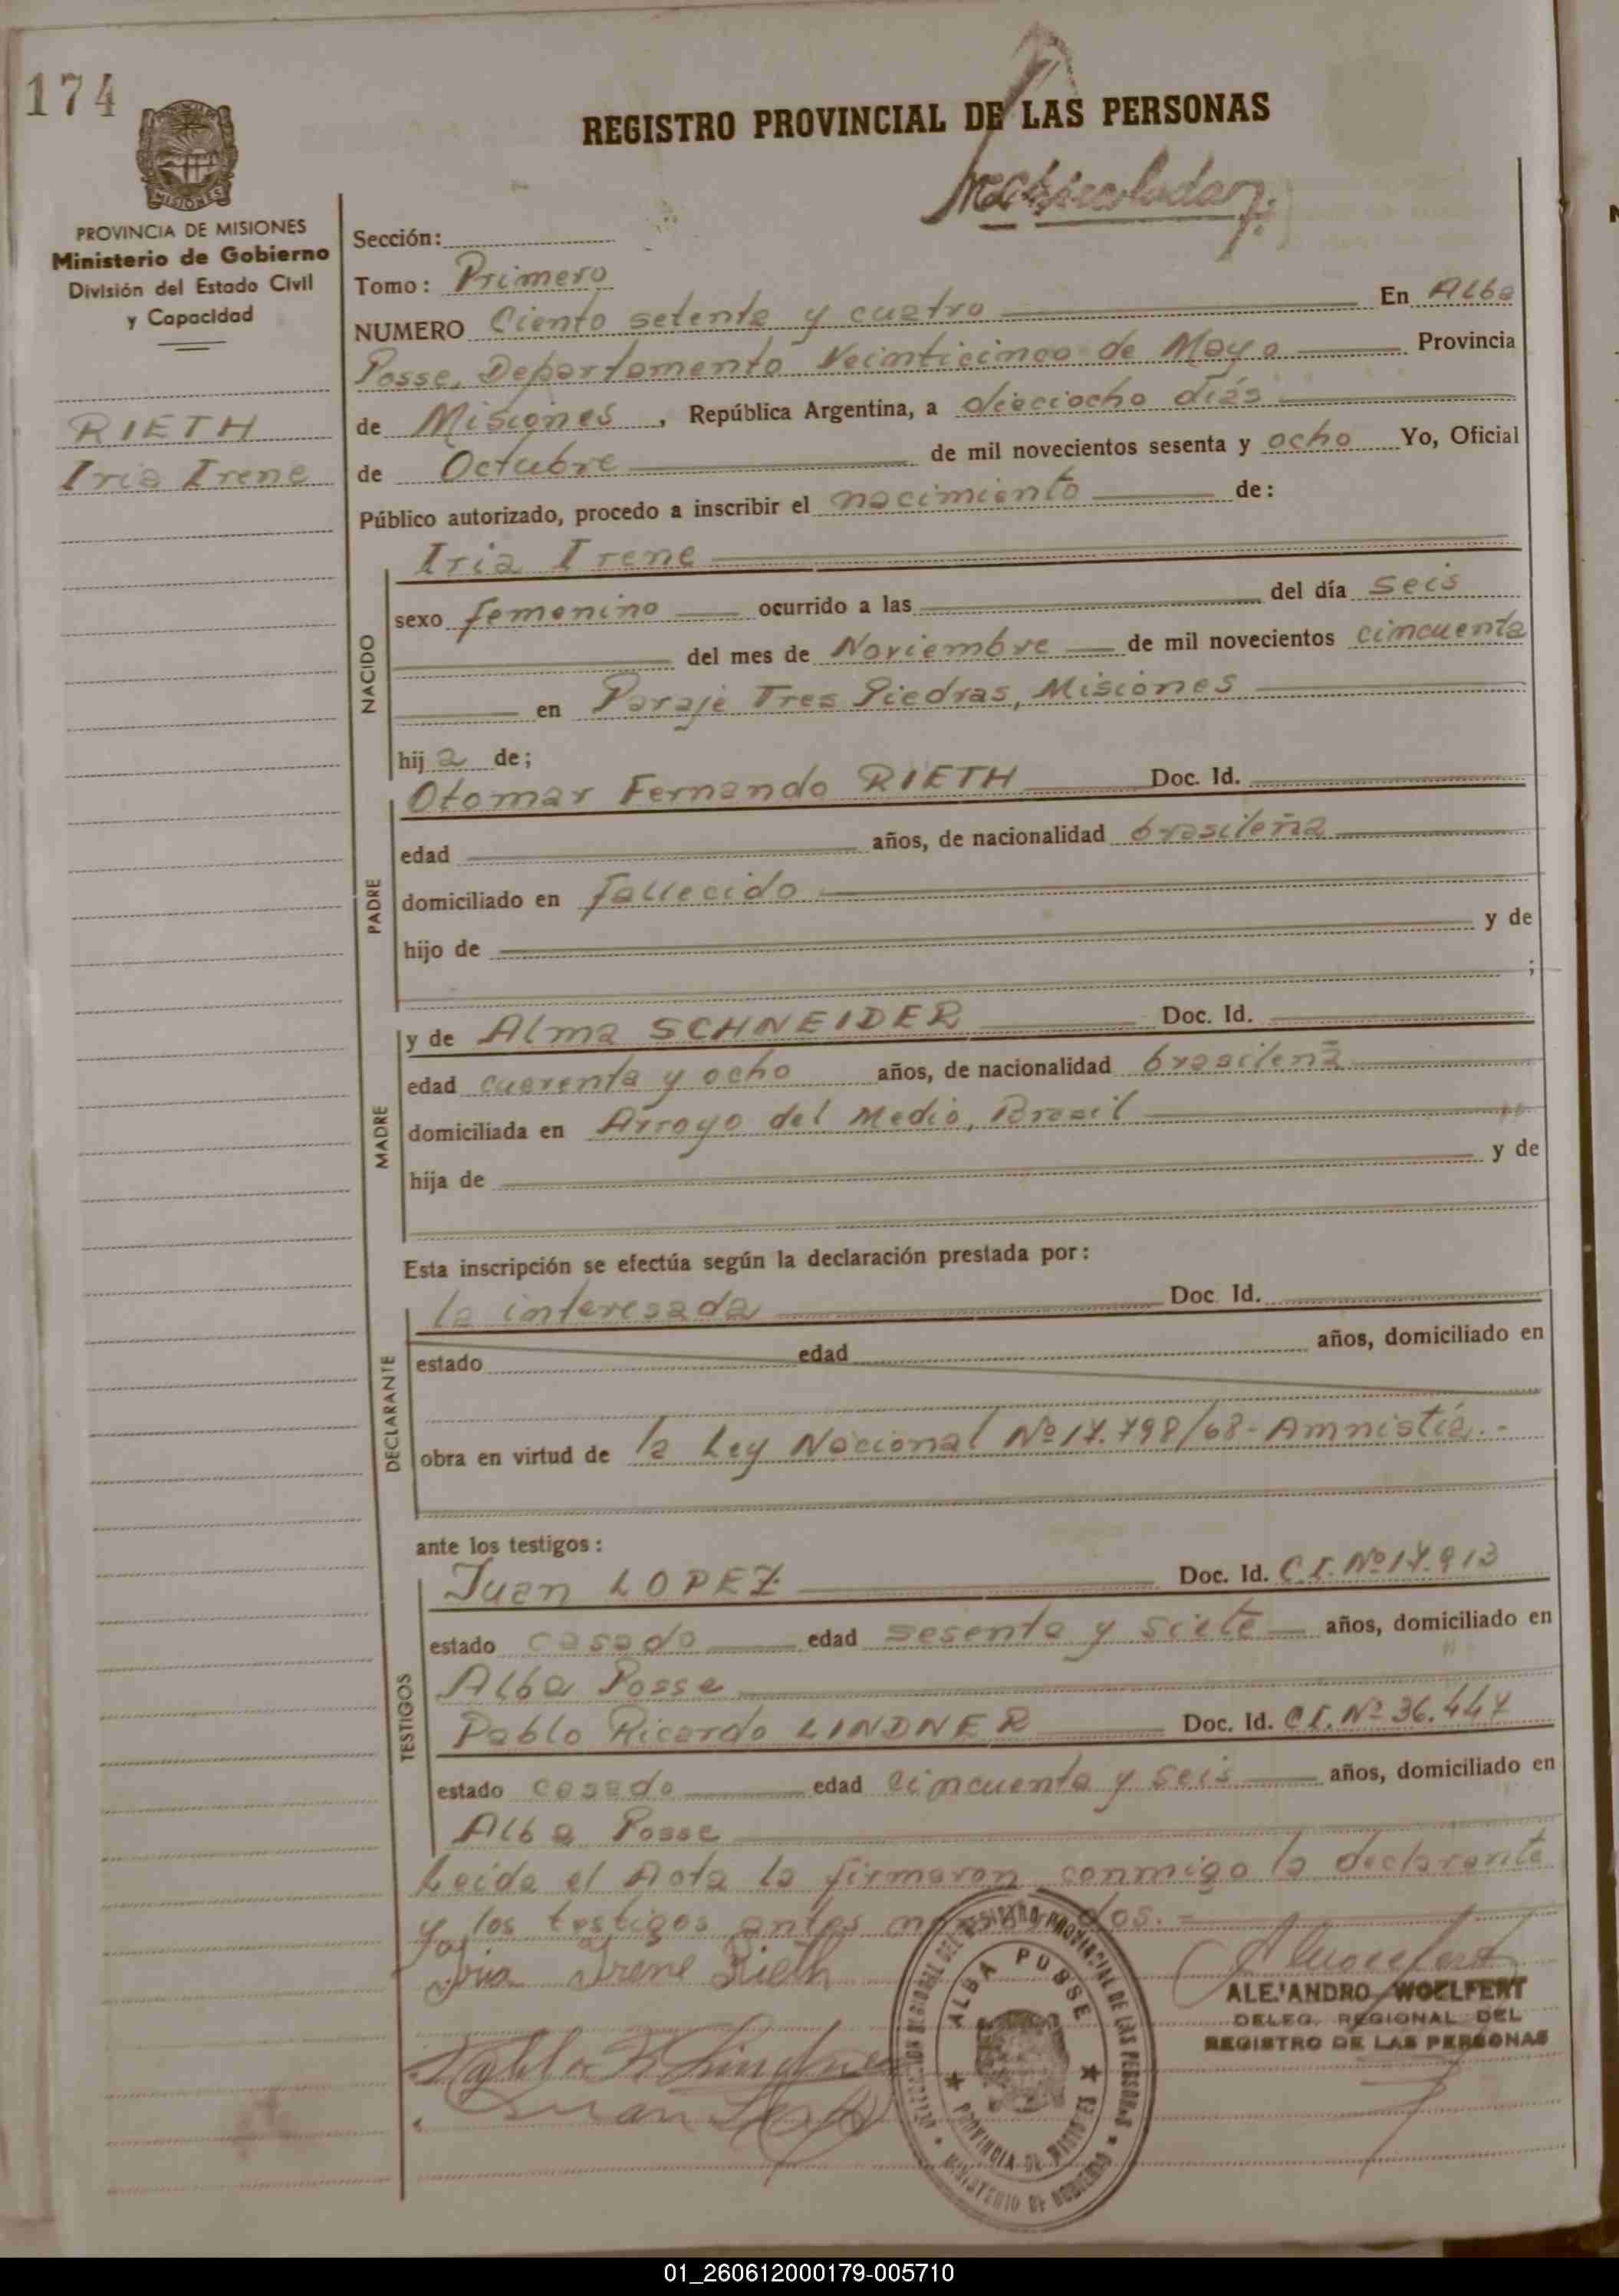 174
REGISTRO PROVINCIAL DE LAS PERSONAS
MISIONES
PROVINCIA DE MISIONES
Ministerio de Gobierno
División del Estado Civil
y Capacidad
RIETH
Iria Irene
Sección:
Tomo: Primero
NUMERO Ciento setenta y cuatro En Alba
Posse, Departamento Veinticinco de Mayo Provincia
de Misiones, República Argentina, a dieciocho días
de Octubre de mil novecientos sesenta y ocho Yo, Oficial
Público autorizado, procedo a inscribir el nacimiento de:
NACIDO
Iria Irene
sexo femenino ocurrido a las del día seis
del mes de Noviembre de mil novecientos cincuenta
en Paraje Tres Piedras, Misiones
hij a de;
PADRE
Otomar Fernando RIETH Doc. Id.
edad años, de nacionalidad brasileña
domiciliado en fallecido
hijo de y de
;
MADRE
y de Alma SCHNEIDER Doc. Id.
edad cuarenta y ocho años, de nacionalidad brasileña
domiciliada en Arroyo del Medio, Brasil
hija de y de
Esta inscripción se efectúa según la declaración prestada por:
DECLARANTE
la interesada Doc. Id.
estado edad años, domiciliado en
obra en virtud de la Ley Nacional Nº 17.798/68- Amnistía.-
ante los testigos:
TESTIGOS
Juan LOPEZ Doc. Id. C.I. Nº 17.913
estado casado edad sesenta y siete años, domiciliado en
Alba Posse
Pablo Ricardo LINDNER Doc. Id. C.I. Nº 36.447
estado casado edad cincuenta y seis años, domiciliado en
Alba Posse
Leida el Acta la firmaron conmigo la declarante
y los testigos antes dos.=
Iria Irene Rieth
Pablo R Lindner
Juan Lopez
ALEJANDRO WOELFERT
DELEG. REGIONAL DEL
REGISTRO DE LAS PERSONAS
DELEGACION REGIONAL DEL REGISTRO PROVINCIAL DE LAS PERSONAS
ALBA POSSE
PROVINCIA DE MISIONES
MINISTERIO DE GOBIERNO
01_260612000179-005710